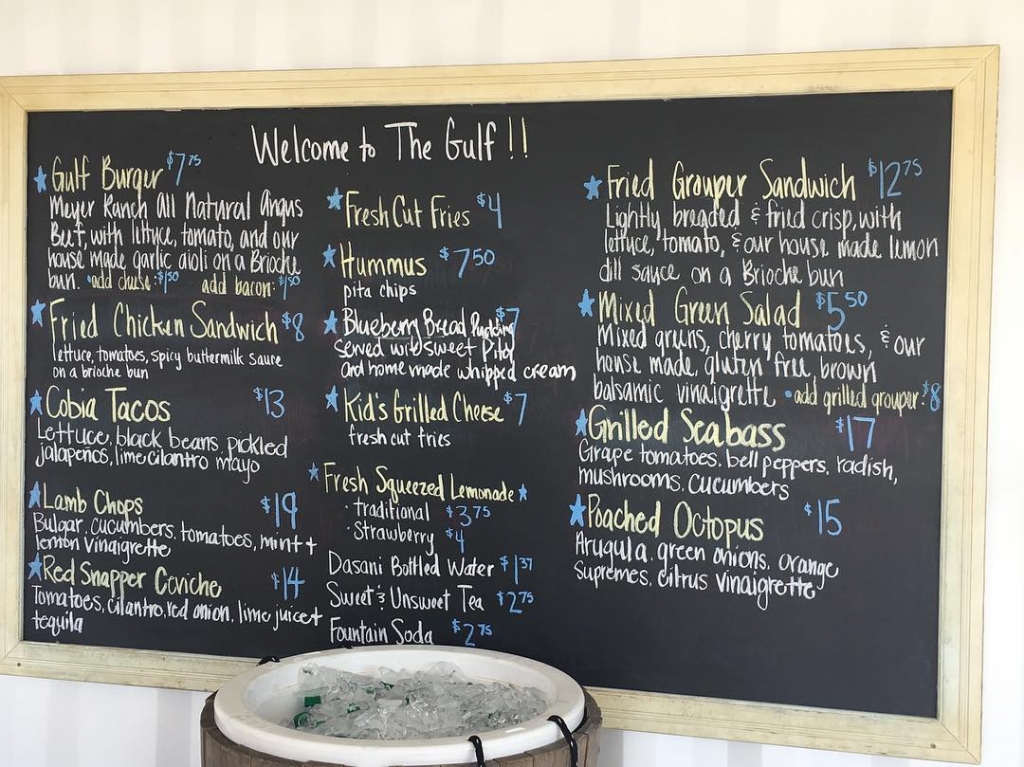 Welcome to The Gulf!!
Gulf Burger $7.75
Meyer Ranch All Natural Angus
Beef, with lettuce, tomato, and our
house made garlic aioli on a Brioche
bun. •add cheese: $1.50 add bacon: $1.50
Fried Chicken Sandwich $8
lettuce, tomatoes, spicy buttermilk sauce
on a brioche bun
Cobia Tacos $13
Lettuce, black beans, pickled
jalapeños, lime cilantro mayo
Lamb Chops $19
Bulgar, cucumbers, tomatoes, mint +
lemon vinaigrette
Red Snapper Ceviche $14
Tomatoes, cilantro, red onion, lime juice +
tequila
Fresh Cut Fries $4
Hummus $7.50
pita chips
Blueberry Bread Pudding $7
served with sweet Pita
and home made whipped cream
Kid's Grilled Cheese $7
fresh cut fries
Fresh Squeezed Lemonade
· traditional $3.75
· Strawberry $4
Dasani Bottled Water $1.37
Sweet & Unsweet Tea $2.75
Fountain Soda $2.75
Fried Grouper Sandwich $12.75
Lightly breaded & fried crisp, with
lettuce, tomato, & our house made lemon
dill sauce on a Brioche bun
Mixed Green Salad $5.50
Mixed greens, cherry tomatoes, & our
house made, gluten free, brown
balsamic vinaigrette •add grilled grouper: $8
Grilled Seabass $17
Grape tomatoes, bell peppers, radish,
mushrooms, cucumbers
Poached Octopus $15
Arugula, green onions, orange
Supremes, citrus vinaigrette